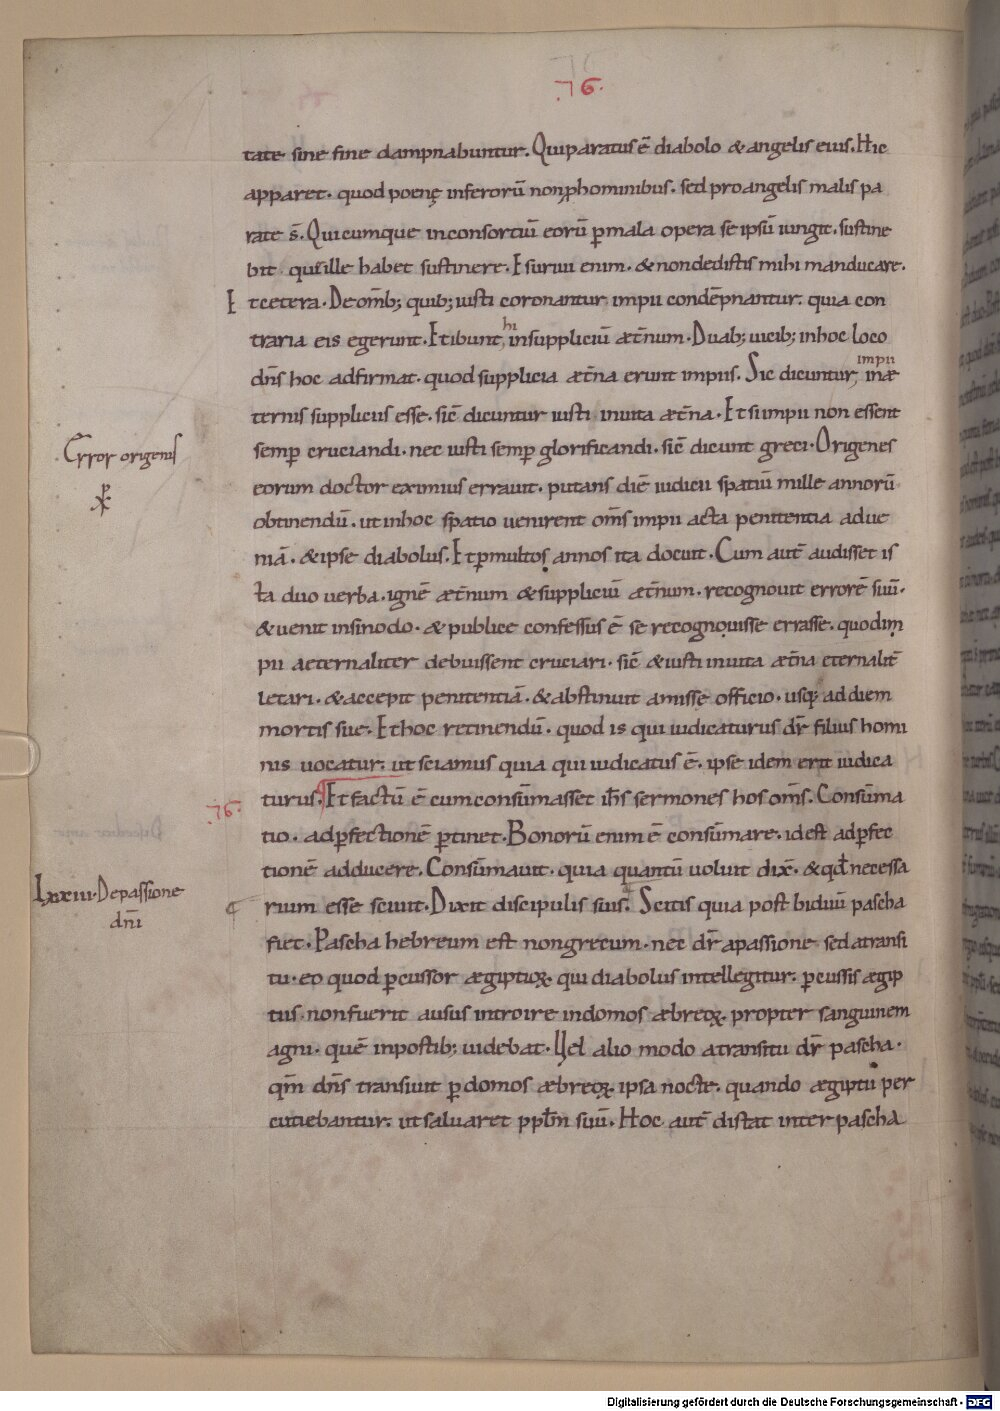 .76.
tate sine fine dampnabuntur. Qui paratus ē diabolo & angelis eius. Hic
apparet. quod poenę inferorū non p hominibus. sed pro angelis malis pa
rate s̄. Quicumque in consortiū eorū p mala opera se ipsū iungit. sustine
bit. qđ ille habet sustinere. Esuriui enim. & non dedistis mihi manducare.
Et cetera. De om̄ib; quib; iusti coronantur impii condēpnantur. quia con
traria eis egerunt. Et ibunt hi in suppliciū æt̄num. Duab; uicib; in hoc loco
dn̄s hoc adfirmat. quod supplicia æt̄na erunt impiis. Sic dicuntur impii in æ
ternis suppliciis esse. sic̄ dicuntur iusti in uita æt̄na. Et si impii non essent
semp cruciandi. nec iusti semp glorificandi. sic̄ dicunt greci. Origenes
Error origenis
eorum doctor eximius errauit. putans diē iudicii spatiū mille annorū
obtinendū. ut in hoc spatio uenirent om̄s impii acta penitentia ad ue
niā. & ipse diabolus. Et p multos annos ita docuit. Cum aut̄ audisset is
ta duo uerba. ignē æt̄num & suppliciū æt̄num. recognouit errorē suū.
& uenit in sinodo. & publice confessus ē se recognouisse errasse. quod im
pii aeternaliter debuissent cruciari. sic̄ & iusti in uita æt̄na eternalit̄
letari. & accepit penitentiā. & abstinuit amisse officio. usq; ad diem
mortis sue. Et hoc retinendū. quod is qui iudicaturus dr̄ filius homi
nis uocatur. ut sciamus quia qui iudicatus ē. ipse idem erit iudica
.76.
turus. Et factū ē cum consūmasset ih̄s sermones hos om̄s. Consūma
tio. ad pfectionē ptinet. Bonorū enim ē consūmare. id est ad pfec
tionē adducere. Consūmauit. quia quantū uoluit dix̄. & qd̄ necessa
lxxiii. De passione
dn̄i
rium esse sciuit. Dixit discipulis suis. Scitis quia post biduū pascha
fiet. Pascha hebreum est non grecum. nec dr̄ a passione sed a transi
tu. eo quod pcussor ægiptioꝝ. qui diabolus intellegitur. pcussis ægip
tiis. non fuerit ausus introire in domos æbreoꝝ. propter sanguinem
agni. quē in postib; uidebat. Uel alio modo a transitu dr̄ pascha.
qm̄ dn̄s transiuit p domos æbreoꝝ. ipsa nocte. quando ægiptii per
cutiebantur. ut saluaret ppl̄m suū. Hoc aut̄ distat inter pascha
Digitalisierung gefördert durch die Deutsche Forschungsgemeinschaft - DFG